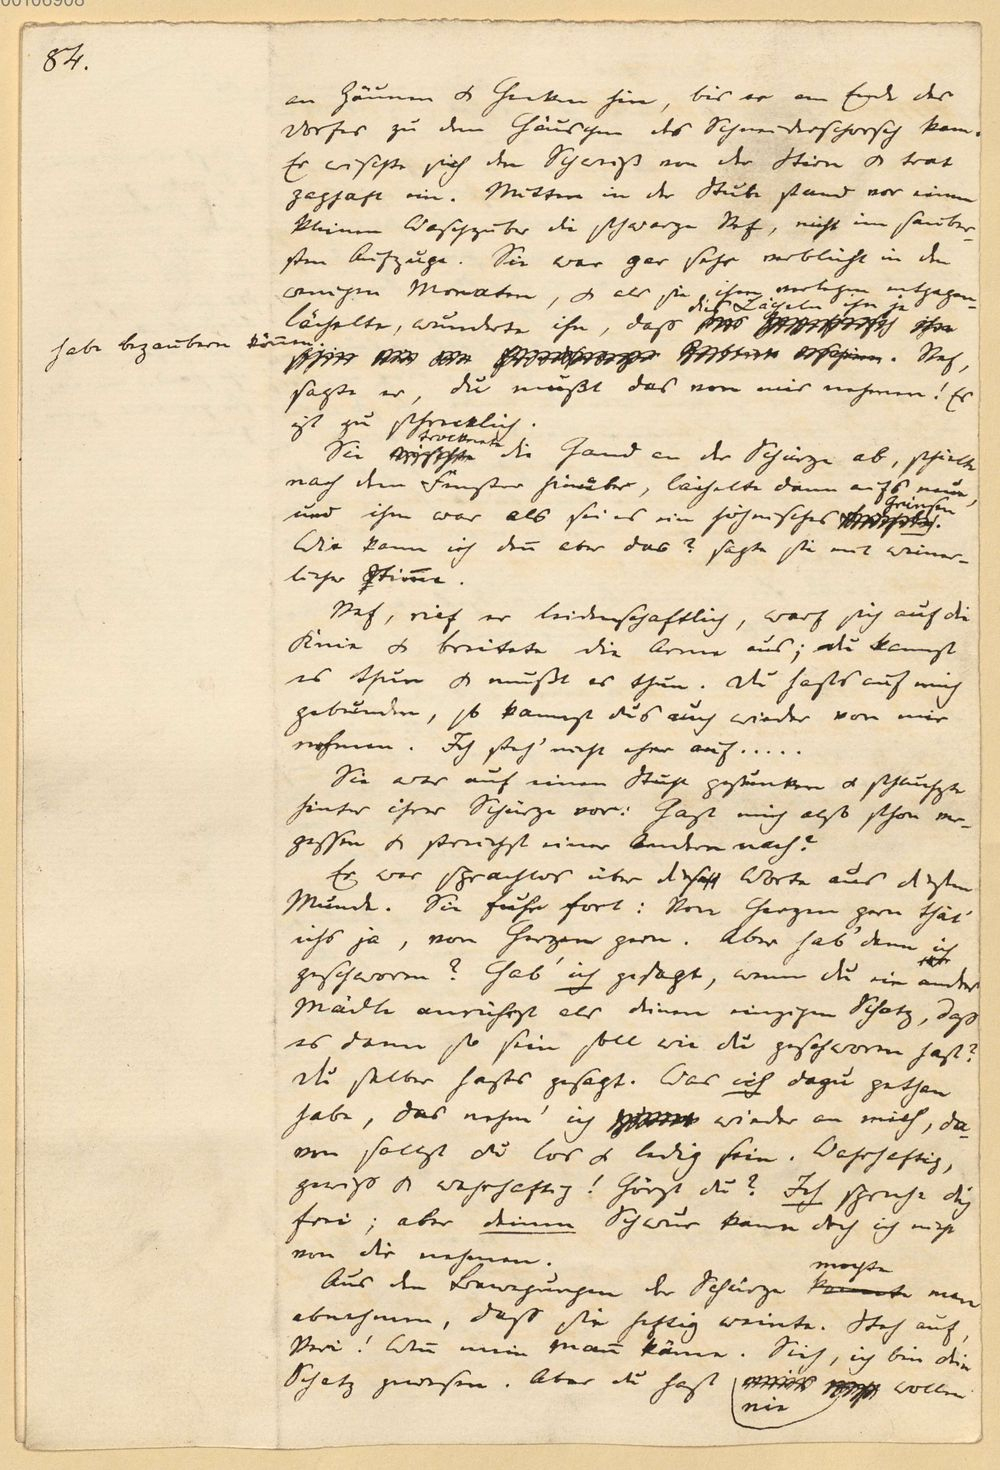 00106908
84.
an Zäunen & Hecken hin, bis er am Ende des
Dorfes zu dem Häuschen des Schneiderschorsch kam.
Er wischte sich den Schweiß von der Stirn & trat
zaghaft ein. Mitten in der Stube stand vor einem
kleinen Waschzuber die schwarze Vef, nicht im sauber-
sten Aufzuge. Sie war gar sehr verblüht in den
wenigen Monaten, & als sie ihm verlegen entgegen-
lächelte, wunderte ihn, daß dies Lächeln ihn je
habe bezaubern können. Vef,
sagte er, du mußt das von mir nehmen! Es
ist zu schrecklich.
Sie trocknete die Hand an der Schürze ab, schielte
nach dem Fenster hinüber, lächelte dann aufs neue,
und ihm war als sei es ein höhnisches Grinsen.
Wie kann ich deñ aber das? sagte sie mit weiner-
licher Stim̃e.
Vef, rief er leidenschaftlich, warf sich auf die
Kniee & breitete die Arme aus; du kannst
es thun & mußt es thun. Du hasts auf mich
gebunden, so kannst dus auch wieder von mir
nehmen. Ich steh' nicht eher auf.....
Sie war auf einen Stuhl gesunken & schluchzte
hinter ihrer Schürze vor: Hast mich also schon ver-
gessen & streichst einer Andern nach?
Er war sprachlos über diese Worte aus diesem
Munde. Sie fuhr fort: Von Herzen gern thät'
ichs ja, von Herzen gern. Aber hab' denn ich
geschworen? Hab' ich gesagt, wenn du ein ander
Mädle anrührst als deinen einzigen Schatz, daß
es dann so sein soll wie du geschworen hast?
Du selber hasts gesagt. Was ich dazu gethan
habe, das nehm' ich wieder an mich, da-
von sollst du los & ledig sein. Wahrhaftig,
gewiß & wahrhaftig! Hörst du? Ich spreche dich
frei; aber deinen Schwur kann doch ich nicht
von dir nehmen.
Aus den Bewegungen der Schürze mochte man
abnehmen, daß sie heftig weinte. Steh auf,
Veri! Weñ mein Mañ käme. Sieh, ich bin dein
Schatz gewesen. Aber du hast nie wollen